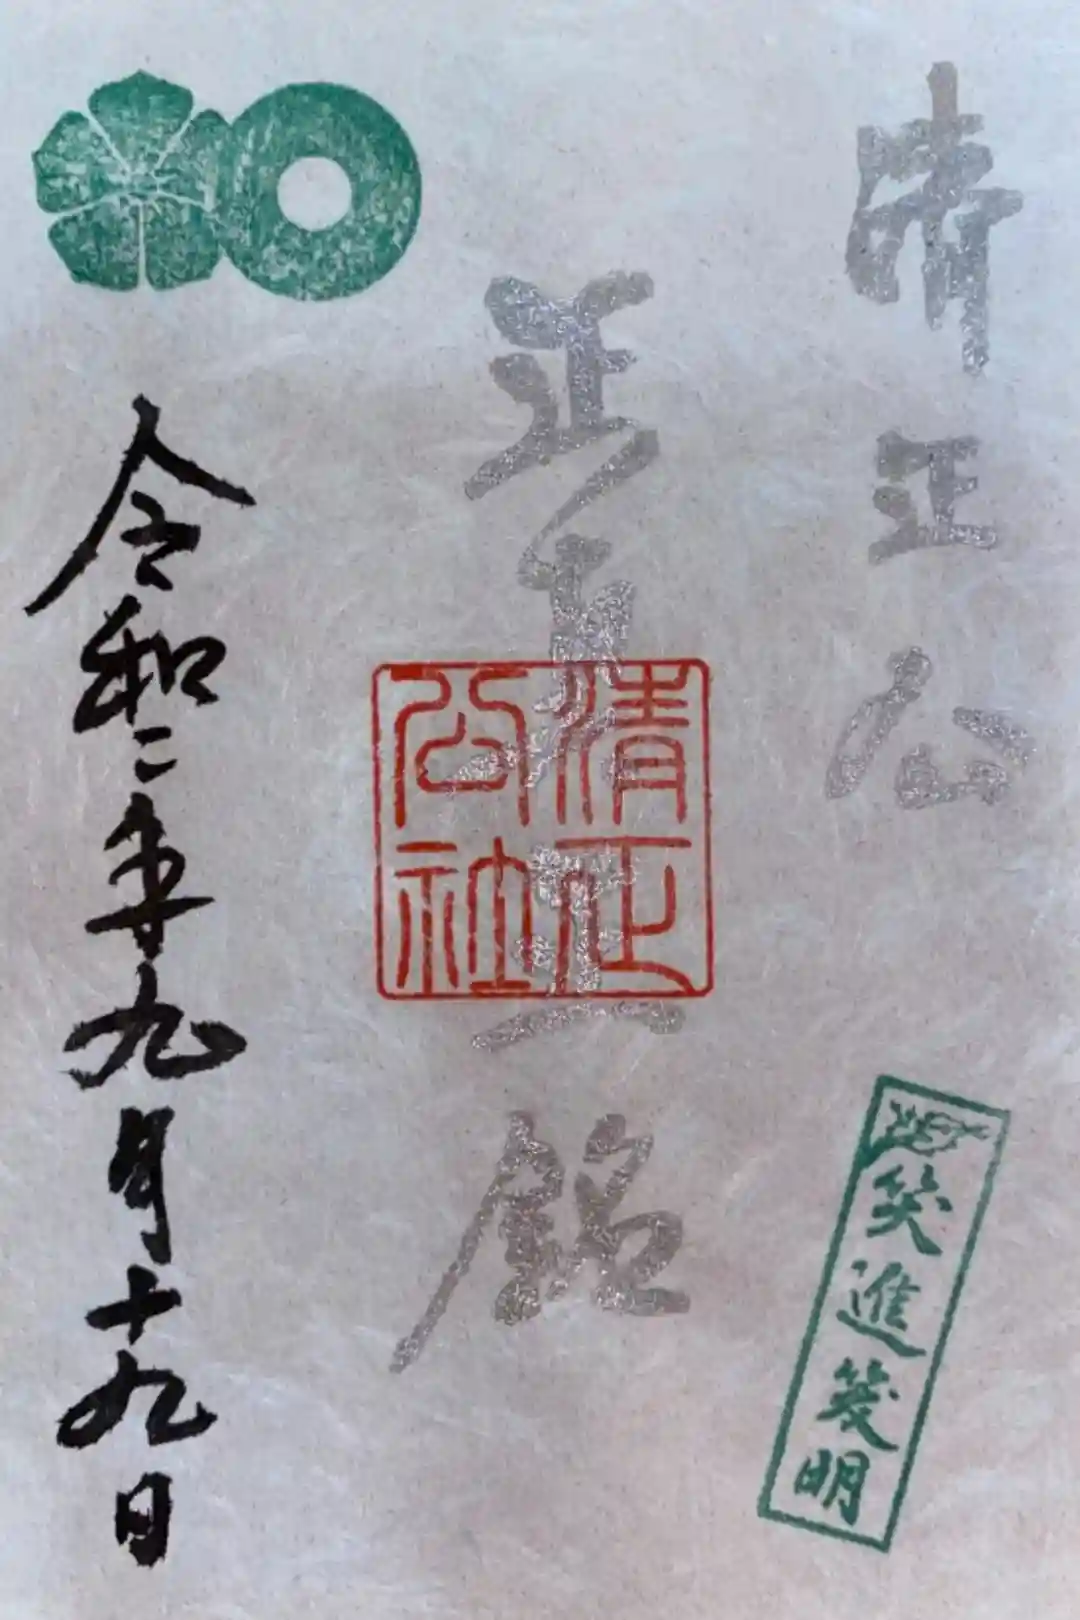 清正公
笑進笑明
正真正銘
清正公社
令和二年九月十九日